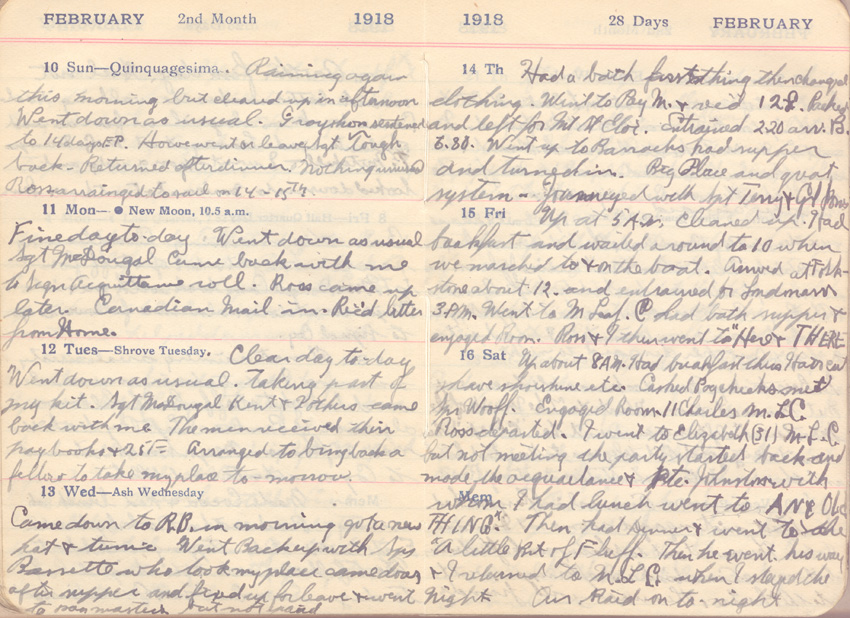 FEBRUARY 2nd Month 1918
10 Sun—Quinquagesima. Raining again
this morning but cleared up in afternoon
Went down as usual. Grayshon sentenced
to 14 days F.P. Howe went on leave, Sgt Tough
back. Returned after dinner. Nothing unusual
Ross arrainged to sail on 14 - 15th.
11 Mon— ● New Moon, 10.5 a.m.
Fine day to-day. Went down as usual
Sgt McDougal came back with me
to sign Acquittance roll. Ross came up
later. Canadian Mail in. Rec'd letter
from Home.
12 Tues—Shrove Tuesday. Clear day to-day
Went down as usual. Taking part of
my kit. Sgt McDougal Kent & 2 others came
back with me. The men received their
paybooks & 25F. Arranged to bring back a
fellow to take my place to-morrow.
13 Wed—Ash Wednesday
Came down to R.B. in morning got a new
hat & tunic Went Back up with
Bassette who took my place came down
after supper and fixed up for leave & went
to but not
1918 28 Days FEBRUARY
14 Th Had a bath first thing then changed
clothing. Went to Pay M. & rec'd 12£. Packed
and left for Mt St Eloi. Entrained 2.20 arr. B.
6.30. Went up to Barracks had supper
and turned in. Big Place and great
system - journeyed with Sgt Terry & Ross
15 Fri Up at 5 A.M. Cleaned up. Had
breakfast and waited around to 10 when
we marched to & on the boat. Arrived at Folk-
stone about 12. and entrained for London arr
3 P.M. Went to M Leaf. C had bath supper &
engaged Room. Ross & I then went to "Here & THERE
16 Sat Up about 8 A.M. Had breakfast then Hair cut
shave shoeshine etc. Cashed Paychecks met
Woolf. Engaged Room. 11 Charles M.L.C.
Ross departed. I went to Elizebeth (31) M.L.C.
but not meeting the party started back and
made the acquaintance of Pte. Johnston with
Mem
whom I had lunch went to ANY Old
THING". Then had dinner & went to the
"A little Bit of Fluff. Then he went his way
& I returned to M.L.C. where I stayed the
Night Air Raid on to-night